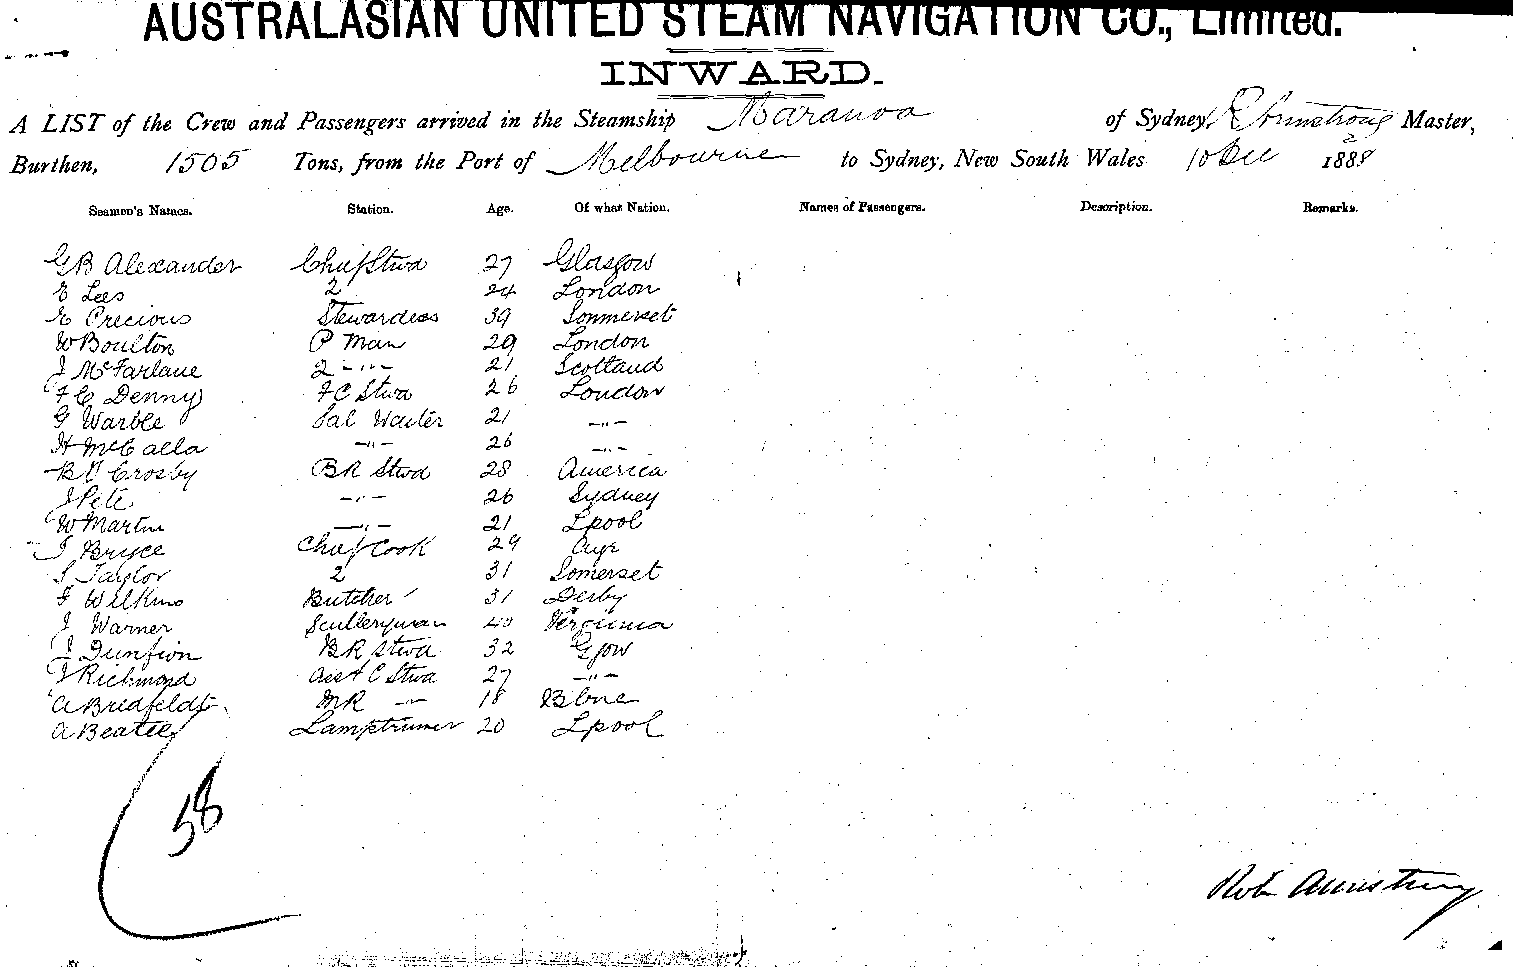 AUSTRALASIAN UNITED STEAM NAVIGATION CO., Limited.
INWARD.
A LIST of the Crew and Passengers arrived in the Steamship Maranoa of Sydney, R Armstrong Master,
Burthen, 1505 Tons, from the Port of Melbourne to Sydney, New South Wales 10 Dec 1888
Seamen's Names. Station. Age. Of what Nation. Names of Passengers. Description. Remarks.
G B Alexander Chief Stwd 27 Glasgow
E Lees 2 24 London
E Precious Stewardess 39 Sommerset
W Boulton P Man 29 London
J McFarlane 2 -"- 21 Scotland
F C Denny FC Stwd 26 London
G Warble Sal Waiter 21 -"-
H McCalla -"- 26 -"-
B V Crosby BR Stwd 28 America
J Pete -"- 26 Sydney
W Martin -"- 21 Lpool
J Bryce Chief Cook 29 Ayr
S Taylor 2 31 Somerset
F Wilkins Butcher 31 Derby
J Warner Sculleryman 40 Virginia
J Dunfion BR Stwd 32 Gow
J Richmond Asst C Stwd 27 -"-
A Bredfeldt MR -"- 18 Bbne
A Beattie Lamptrimer 20 Lpool
58
Rob Armstrong